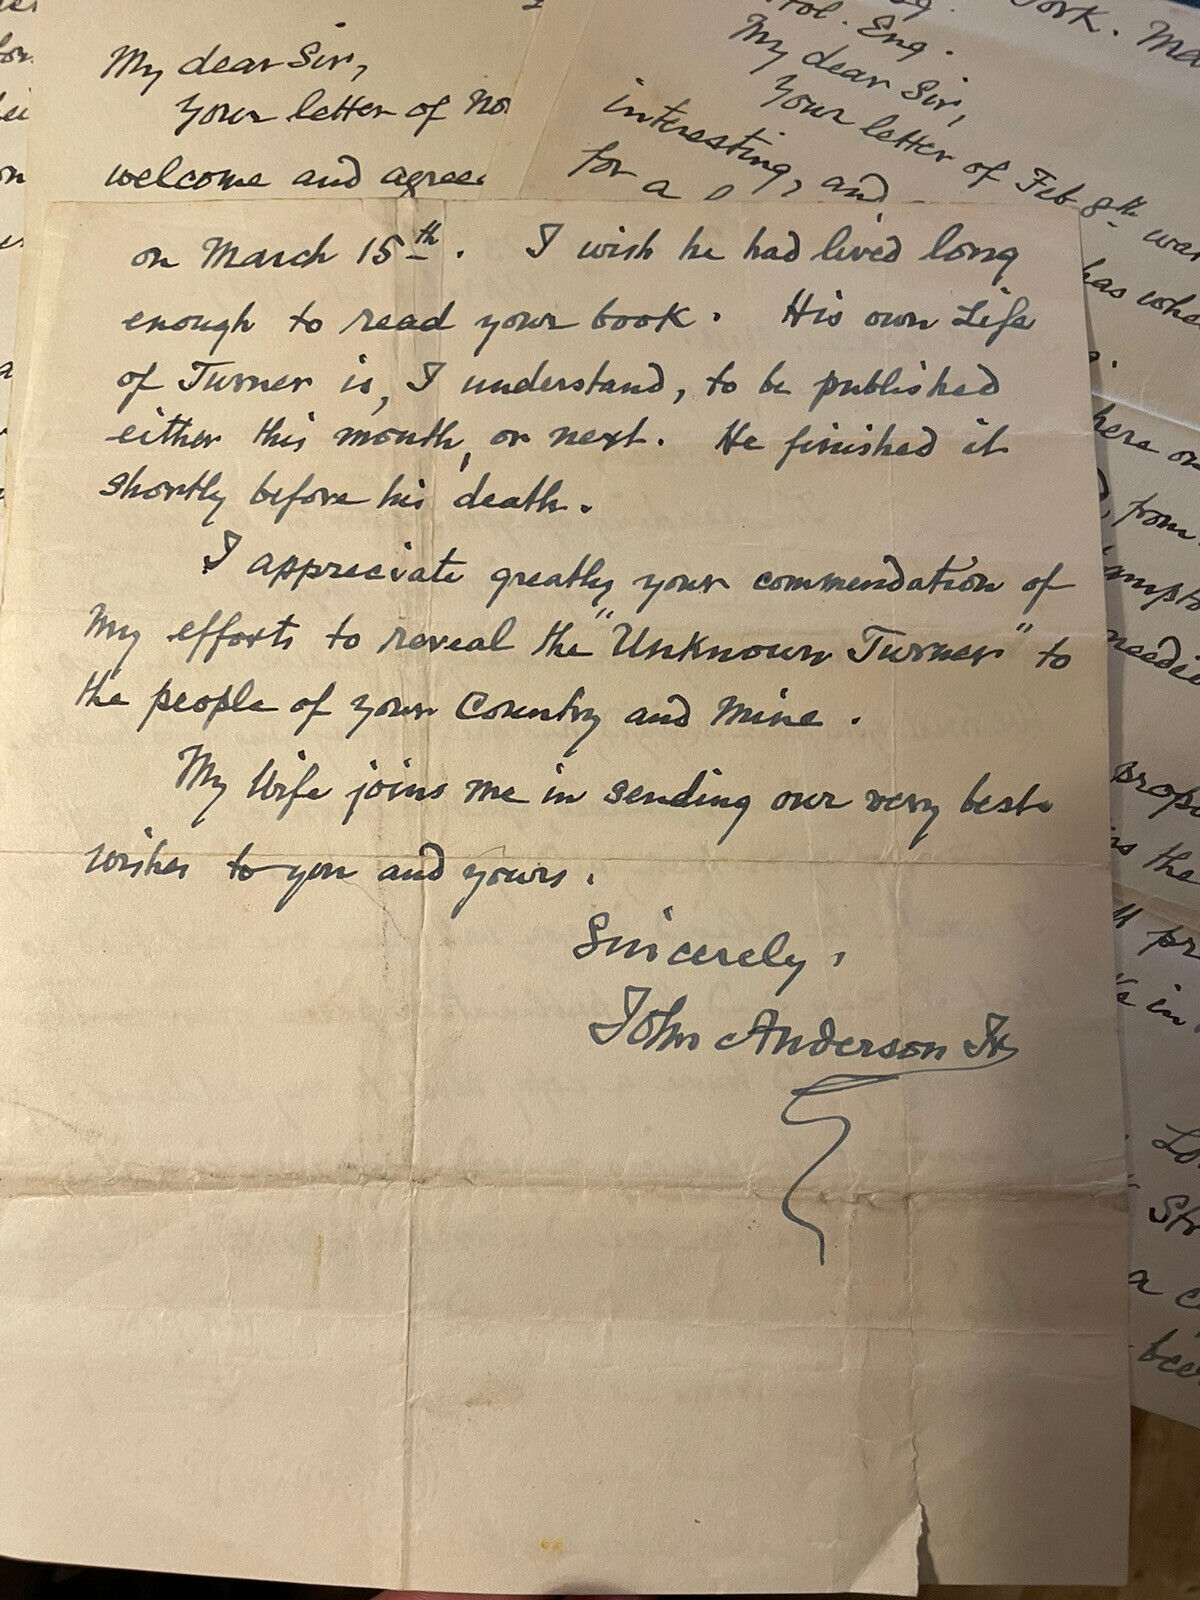 My dear Sir,
Your letter of No
welcome and agree
York. Ma
Eng.
My dear Sir,
Your letter of Feb 8th. was
interesting, and
for a
has whe
on March 15th. I wish he had lived long
enough to read your book. His own Life
of Turner is, I understand, to be published
either this month, or next. He finished it
shortly before his death.
I appreciate greatly your commendation of
my efforts to reveal the "Unknown Turner" to
the people of your Country and mine.
My Wife joins me in sending our very best
wishes to you and yours.
Sincerely,
John Anderson Jr
here on
, from
needed
is the
pr
in
Str
a c
bee